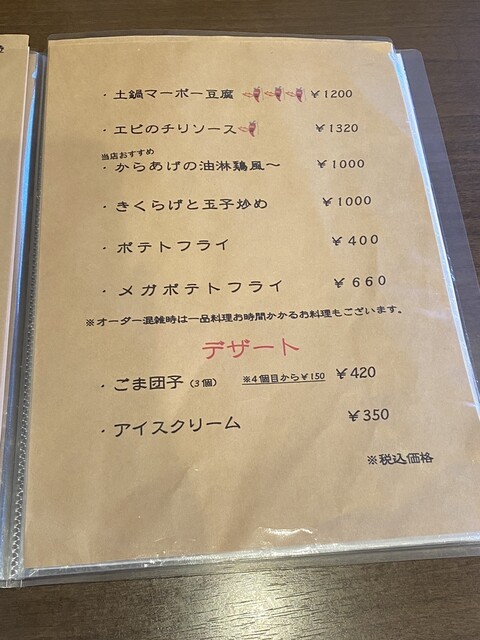 ・土鍋マーボー豆腐 ¥1200
・エビのチリソース ¥1320
当店おすすめ
・からあげの油淋鶏風～ ¥1000
・きくらげと玉子炒め ¥1000
・ポテトフライ ¥400
・メガポテトフライ ¥660
※オーダー混雑時は一品料理お時間かかるお料理もございます。
デザート
・ごま団子(3個) ※4個目から¥150 ¥420
・アイスクリーム ¥350
※税込価格